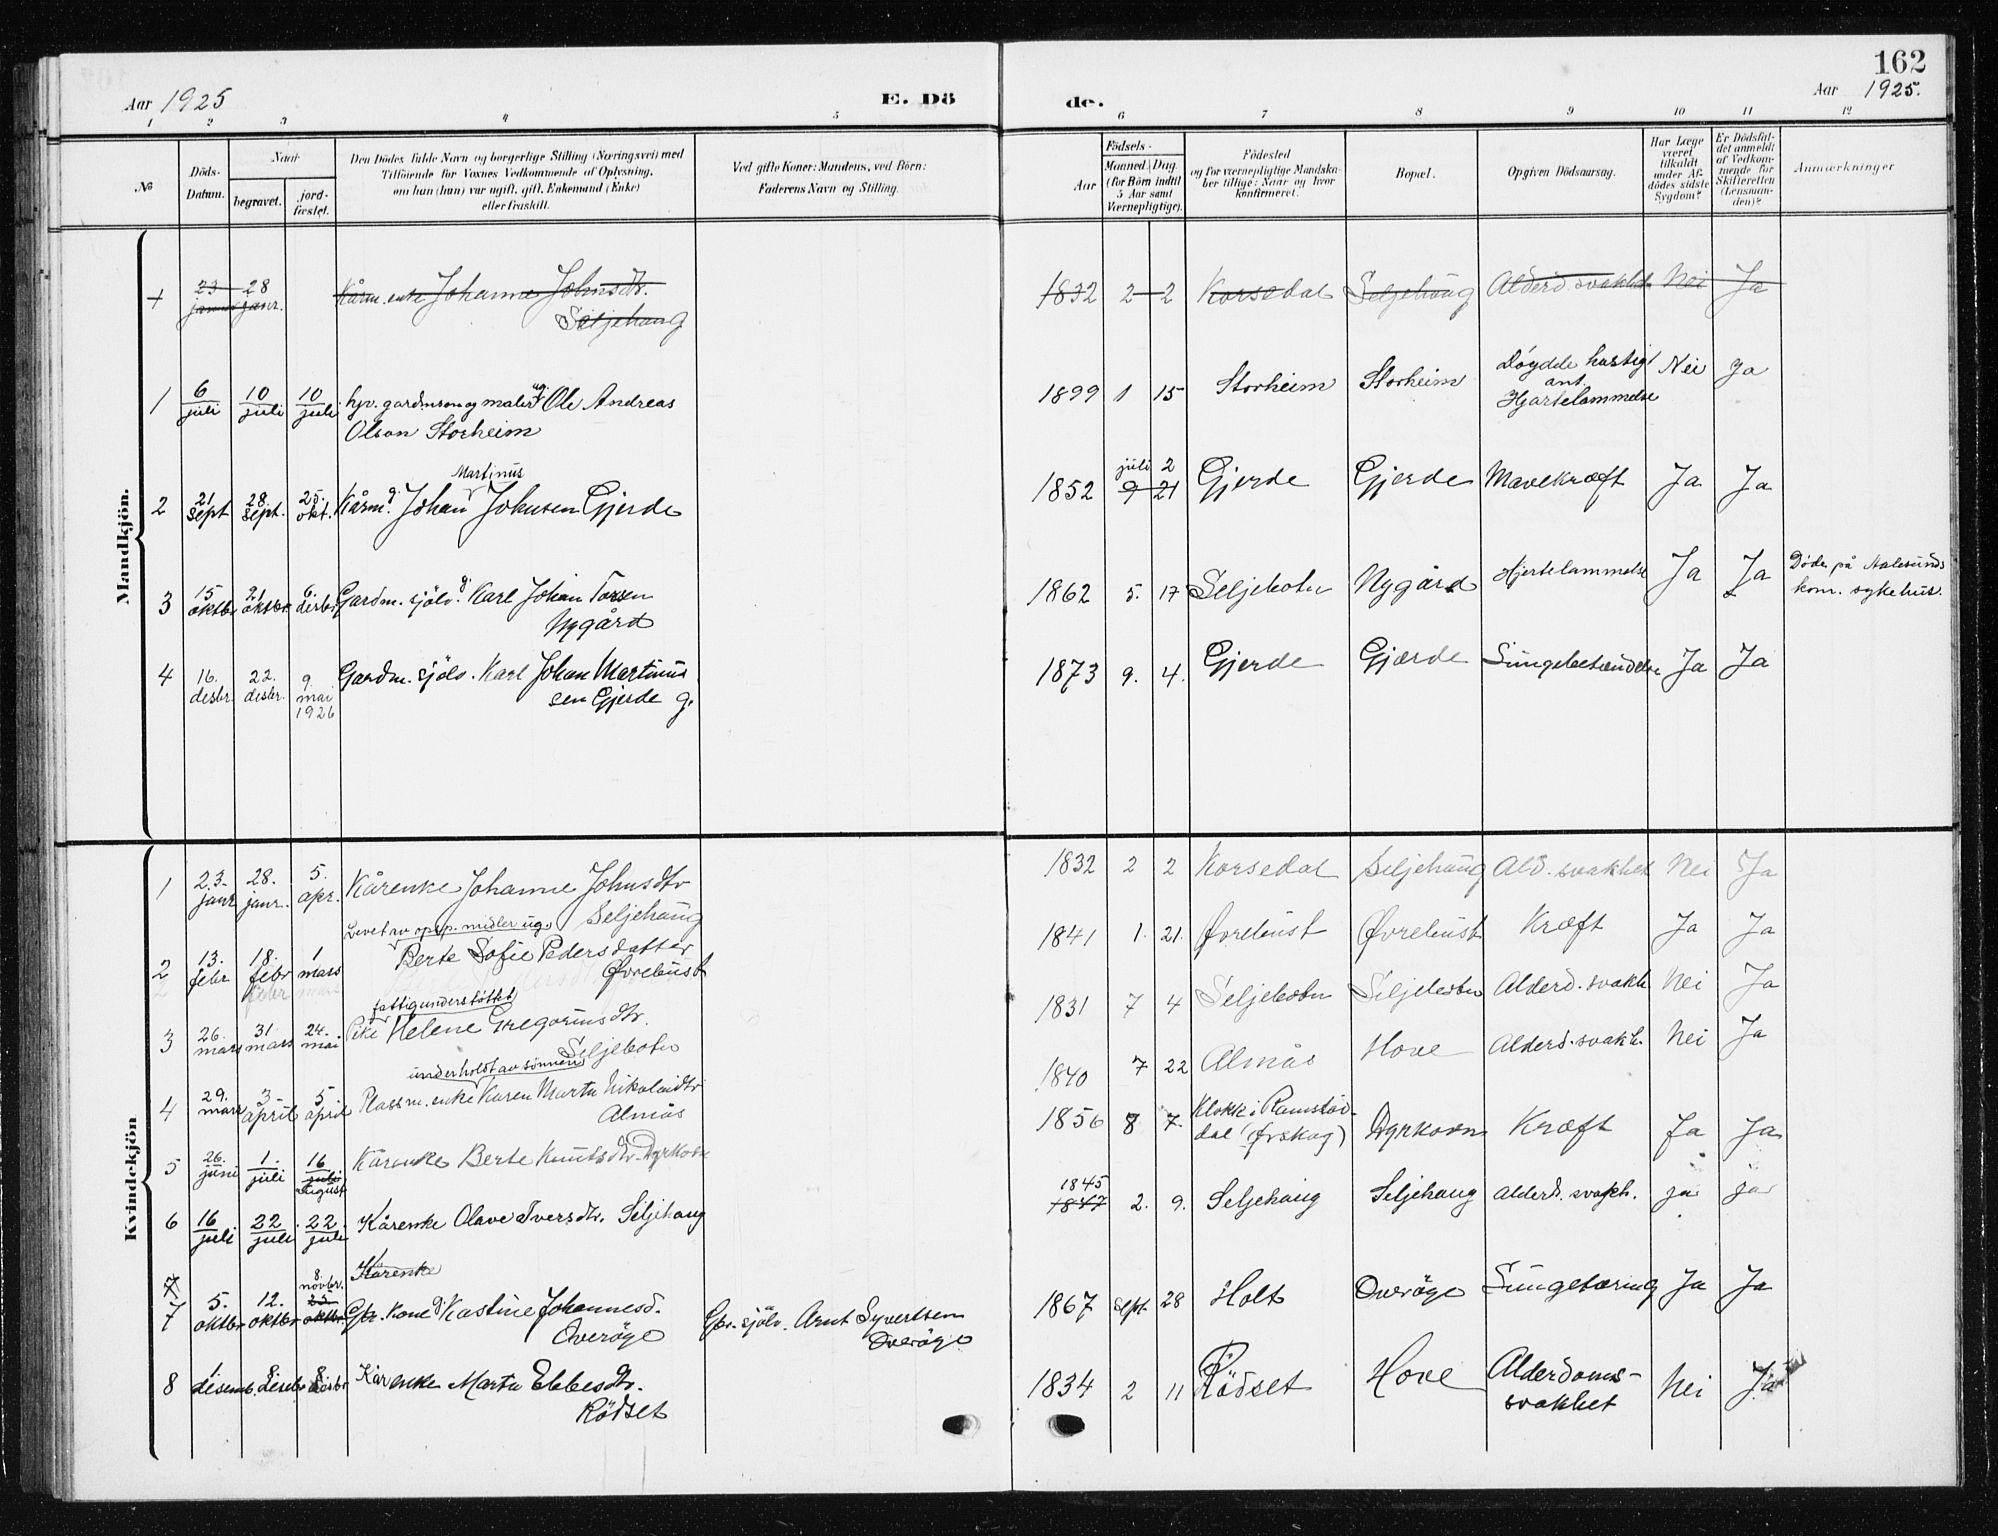 162
Aar 1925 E. Dö de. Aar 1925.
1 2 3 4 5 6 7 8 9 10 11 12
No
Döds-Datum.
Naar
begravet.
jord-fæstet.
Den Dödes fulde Navn og borgerlige Stilling (Næringsvei) med
Tilföiende for Voxnes Vedkommende af Oplysning,
om han (hun) var ugift, gift, Enkemand (Enke)
eller fraskilt.
Ved gifte Koner: Mandens, ved Börn:
Faderens Navn og Stilling.
Födsels-
Aar
Maaned. Dag
(for Börn indtil
5 Aar samt
Værnepligtige).
Födested
og for værnepligtige Mandska-
ber tillige: Naar og hvor
konfirmeret.
Bopæl.
Opgiven Dödsaarsag.
Har Læge
været
tilkaldt
under Af-
dödes sidste
Sygdom?
Er Dödsfal-
det anmeldt
af Vedkom-
mende for
Skifteretten
(Lensman-
den)?
Anmærkninger
Mandkjön.
1 23 januar 28 janr. Kårm. enke Johanne Johnsdtr. Seljehaug 1832 2 2 Korsedal Seljehaug Alderd. svakhet Nei Ja
1 6 juli 10 juli 10 juli hjv. gardmson og maler ug. Ole Andreas
Olson Storheim 1899 1 15 Storheim Storheim Døydde hastigt ant. Hjartelammelse Nei Ja
2 21 sept 28 sept. 25. okt. Kårm. g. Johan Martinus Johnsen Gjerde 1852 9 21 juli 2 Gjerde Gjerde Mavekræft Ja Ja
3 15 oktbr 21 oktbr. 6. desbr Gardm. sjölv. g. Karl Johan Tarsen
Nygård 1862 5. 17 Seljebotn Nygård Hjertelammelse Ja Ja Døde på Aalesunds
kom. sykehus.
4 16. desbr. 22. desbr. 9 mai 1926 Gardm. sjölv. Karl Johan Martinus
sen Gjerde g. 1873 9. 4. Gjerde Gjærde Lungebetændelse Ja Ja
Kvindekjön
1 23. janr 28. janr. 5. apr. Kårenke Johanne Johnsdtr
Seljehaug 1832 2 2 Korsedal Seljehaug Ald. svakhet Nei Ja
2 13. febr 18. febr 1 mars Levet av opsp. midler ug.
Berte Sofie Pedersdatter
Øvrebust 1841 1. 21. Øvrebust Øvrebust Kræft Ja Ja
3 26. mars 31 mars 24. mai fattigunderstöttet
Pike Helene Gregoriusdtr.
Seljebotn 1831 7 4 Seljebotn Seljebotn Alderd. svakh. Nei Ja
4 29. mars 3. april 5 april underholdt av sönnen
Plassm. enke Karen Marta Nikolaidtr
Almås 1840 7 22 Almås Hove Alderd. svakh. Nei Ja
5 26. juni 1. juli 16 juli August Kårenke Berte Knutsdtr. Dyrkorn 1856 8 7 Klokk i Ramstad-
dal (Ørskog) Dyrkorn Kræft Ja Ja
6 16 juli 22 juli 22. juli Kårenke Olave Iversdtr. Seljehaug 1847 1845 2. 9. Seljehaug Seljehaug Alderd. svakh. ja ja
7 Kårenke
7 5. oktbr 12. oktbr 25. oktbr 8. novbr. Gbr. kone g. Kastine Johannesd.
Overöye Gbr. sjölv. Arnt Syvertsen
Overöye 1867 sept 28 Holt Overöye Lungetæring Ja Ja
8 1 desemb. 8 desbr 8 desbr Kårenke Marta Ebbesdtr.
Rödset 1834 2 11 Rödset Hove Alderdoms-
svakhet Nei Ja